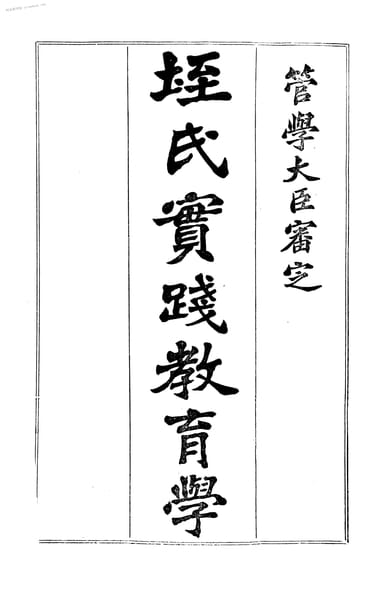 管學大臣審定
垤氏實踐教育學